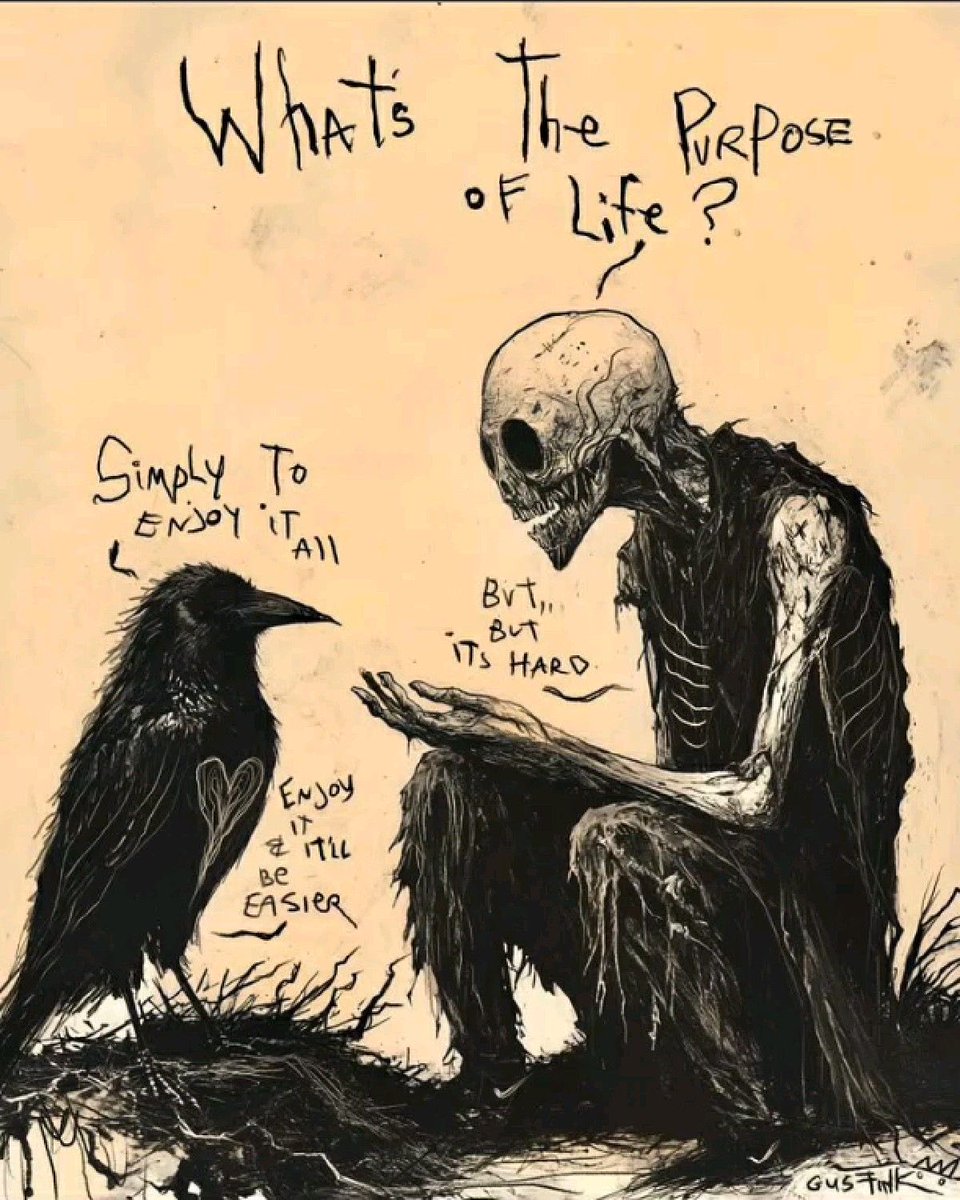 WHAT'S THE PURPOSE
OF Life?
SimpLy To
ENJOY iT
All
BUT,,
BUT
iTs HARD
ENJOY
IT
& IT'LL
BE
EASIER
GUS FINK